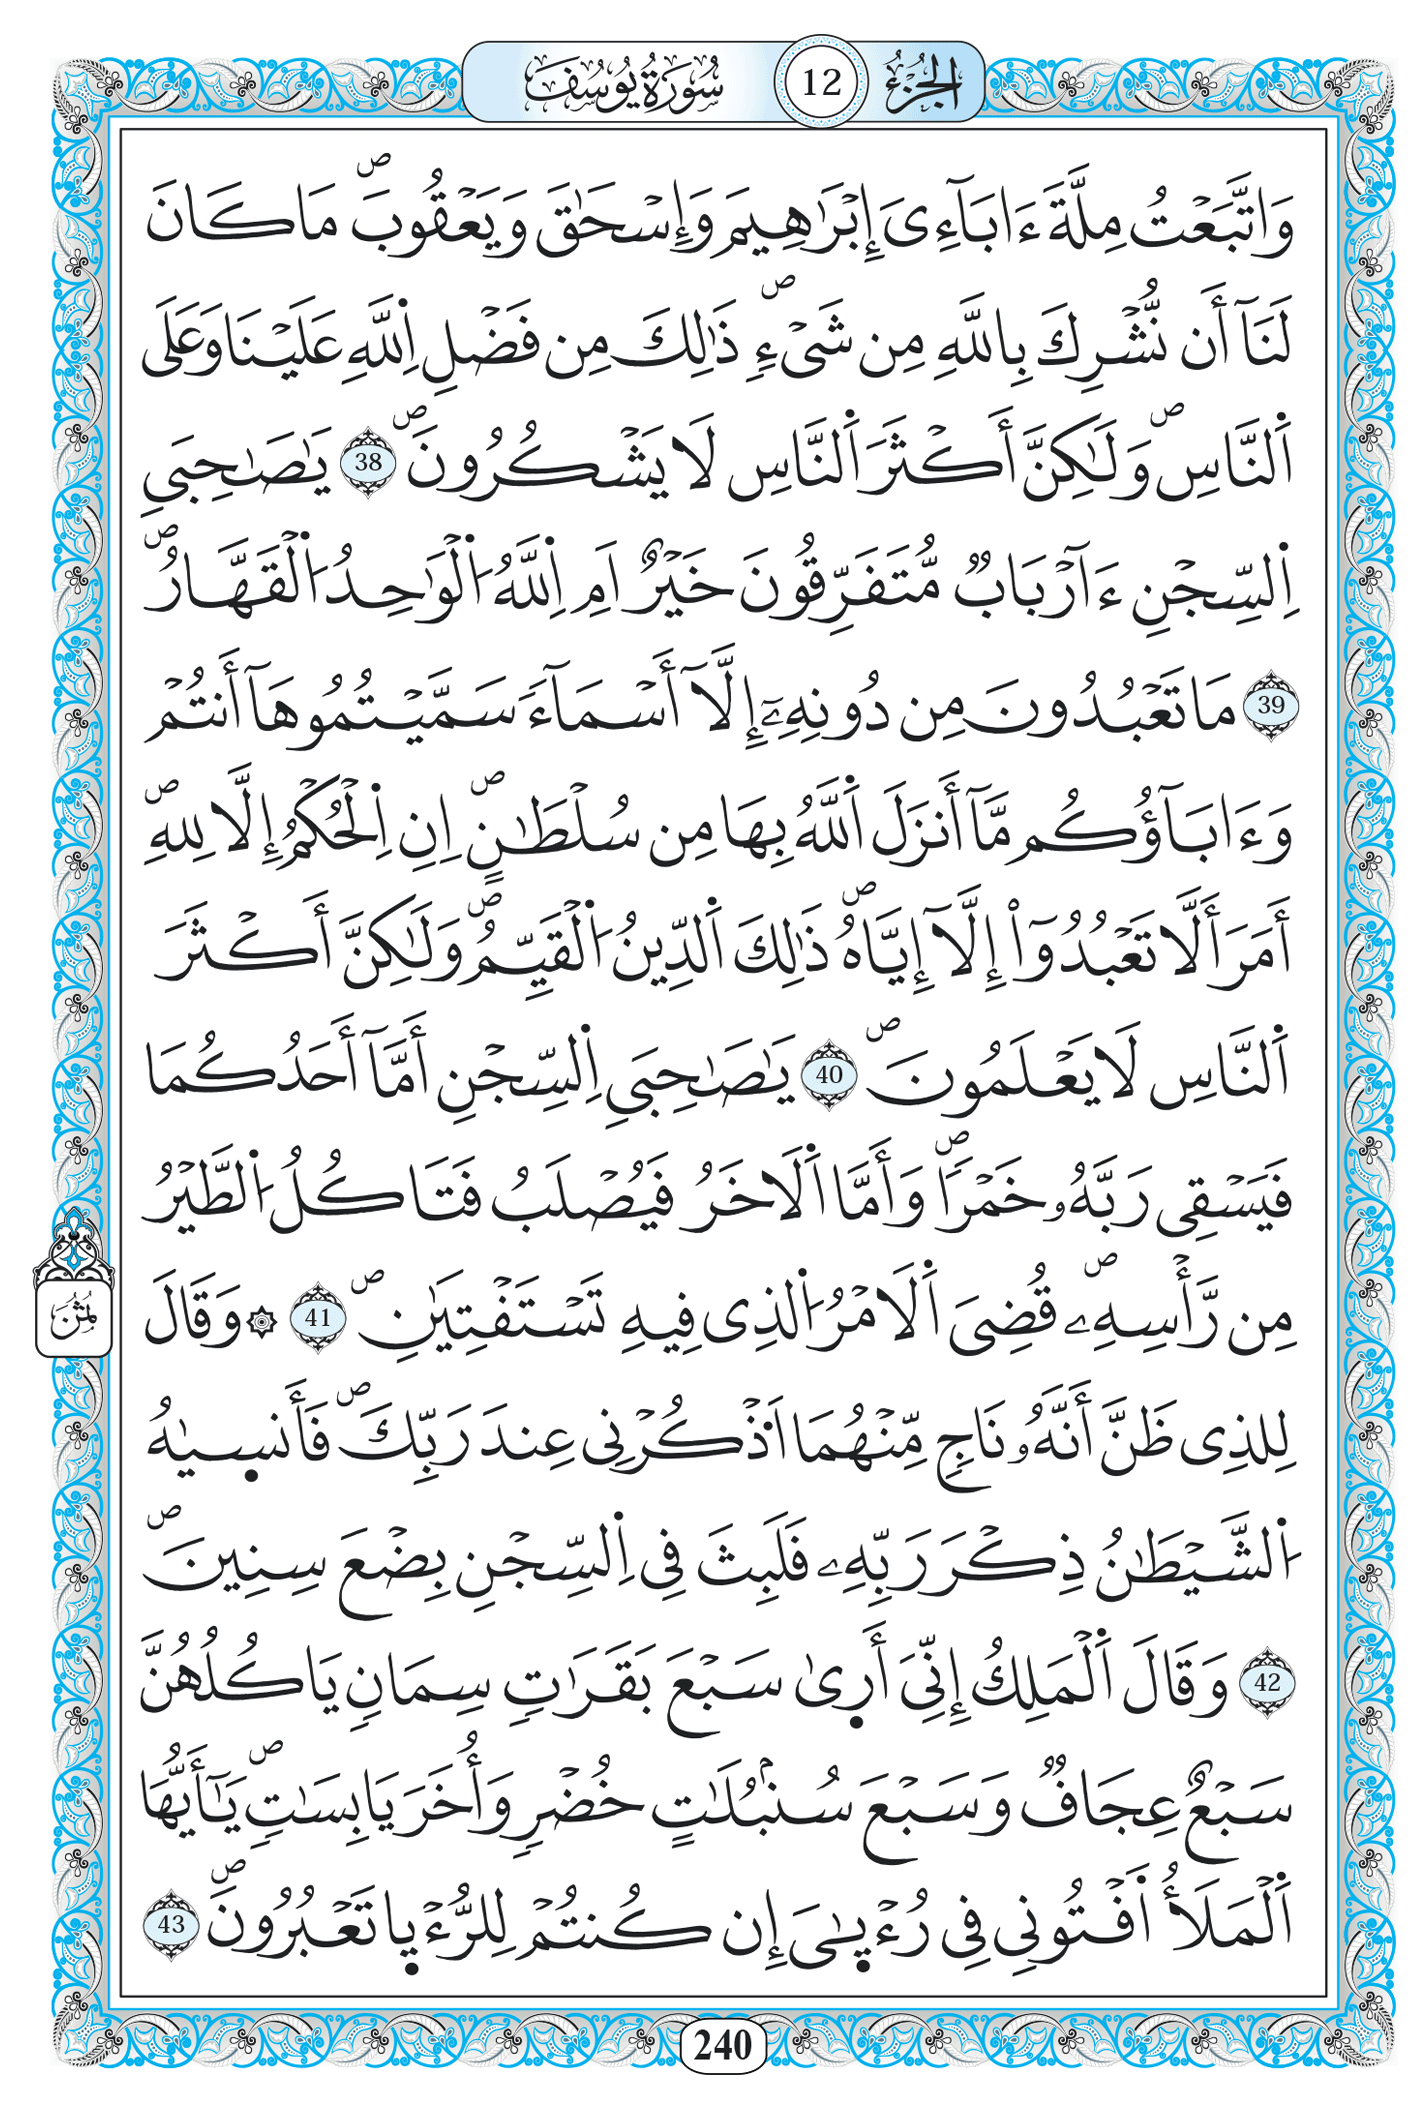 الجُزْءُ 12 سُورَةُ يُوسُفَ
وَاتَّبَعْتُ مِلَّةَ ءَابَآءِىَ إِبْرَٰهِيمَ وَإِسْحَٰقَ وَيَعْقُوبَ ص مَا كَانَ
لَنَآ أَن نُّشْرِكَ بِاللَّهِ مِن شَىْءٍ ص ذَٰلِكَ مِن فَضْلِ اِ۬للَّهِ عَلَيْنَا وَعَلَى
اَ۬لنَّاسِ ص وَلَٰكِنَّ أَكْثَرَ اَ۬لنَّاسِ لَا يَشْكُرُونَ ص 38 يَٰصَٰحِبَىِ
اِ۬لسِّجْنِ ءَآرْبَابٌ مُّتَفَرِّقُونَ خَيْرٌ اَمِ اِ۬للَّهُ اُ۬لْوَٰحِدُ اُ۬لْقَهَّارُ ص
39 مَا تَعْبُدُونَ مِن دُونِهِۦٓ إِلَّآ أَسْمَآءَ سَمَّيْتُمُوهَآ أَنتُمْ
وَءَابَآؤُكُم مَّآ أَنزَلَ اَ۬للَّهُ بِهَا مِن سُلْطَٰنٍ ص اِنِ اِ۬لْحُكْمُ إِلَّا لِلهِ ص
أَمَرَ أَلَّا تَعْبُدُوٓاْ إِلَّآ إِيَّاهُ ص ذَٰلِكَ اَ۬لدِّينُ اُ۬لْقَيِّمُ ص وَلَٰكِنَّ أَكْثَرَ
اَ۬لنَّاسِ لَا يَعْلَمُونَ ص 40 يَٰصَٰحِبَىِ اِ۬لسِّجْنِ أَمَّآ أَحَدُكُمَا
فَيَسْقِى رَبَّهُۥ خَمْرًا ص وَأَمَّا اَ۬لَاخَرُ فَيُصْلَبُ فَتَاكُلُ اُ۬لطَّيْرُ
مِن رَّأْسِهِۦ ص قُضِىَ اَ۬لَامْرُ اُ۬لذِى فِيهِ تَسْتَفْتِيَٰنِ ص 41 ۞ وَقَالَ
ثُمُن
لِلذِى ظَنَّ أَنَّهُۥ نَاجٍ مِّنْهُمَا اَ۟ذْكُرْنِى عِندَ رَبِّكَ ص فَأَنسِيٰهُ
اُ۬لشَّيْطَٰنُ ذِكْرَ رَبِّهِۦ فَلَبِثَ فِى اِ۬لسِّجْنِ بِضْعَ سِنِينَ ص
42 وَقَالَ اَ۬لْمَلِكُ إِنِّىَ أَرِىٰ سَبْعَ بَقَرَٰتٍ سِمَانٍ يَاكُلُهُنَّ
سَبْعٌ عِجَافٌ وَسَبْعَ سُنۢبُلَٰتٍ خُضْرٍ وَأُخَرَ يَابِسَٰتٍ ص يَٰٓأَيُّهَا
اَ۬لْمَلَأُ اَ۬فْتُونِى فِى رُءْيٜـٰىَ إِن كُنتُمْ لِلرُّءْيٜا تَعْبُرُونَ ص 43
240